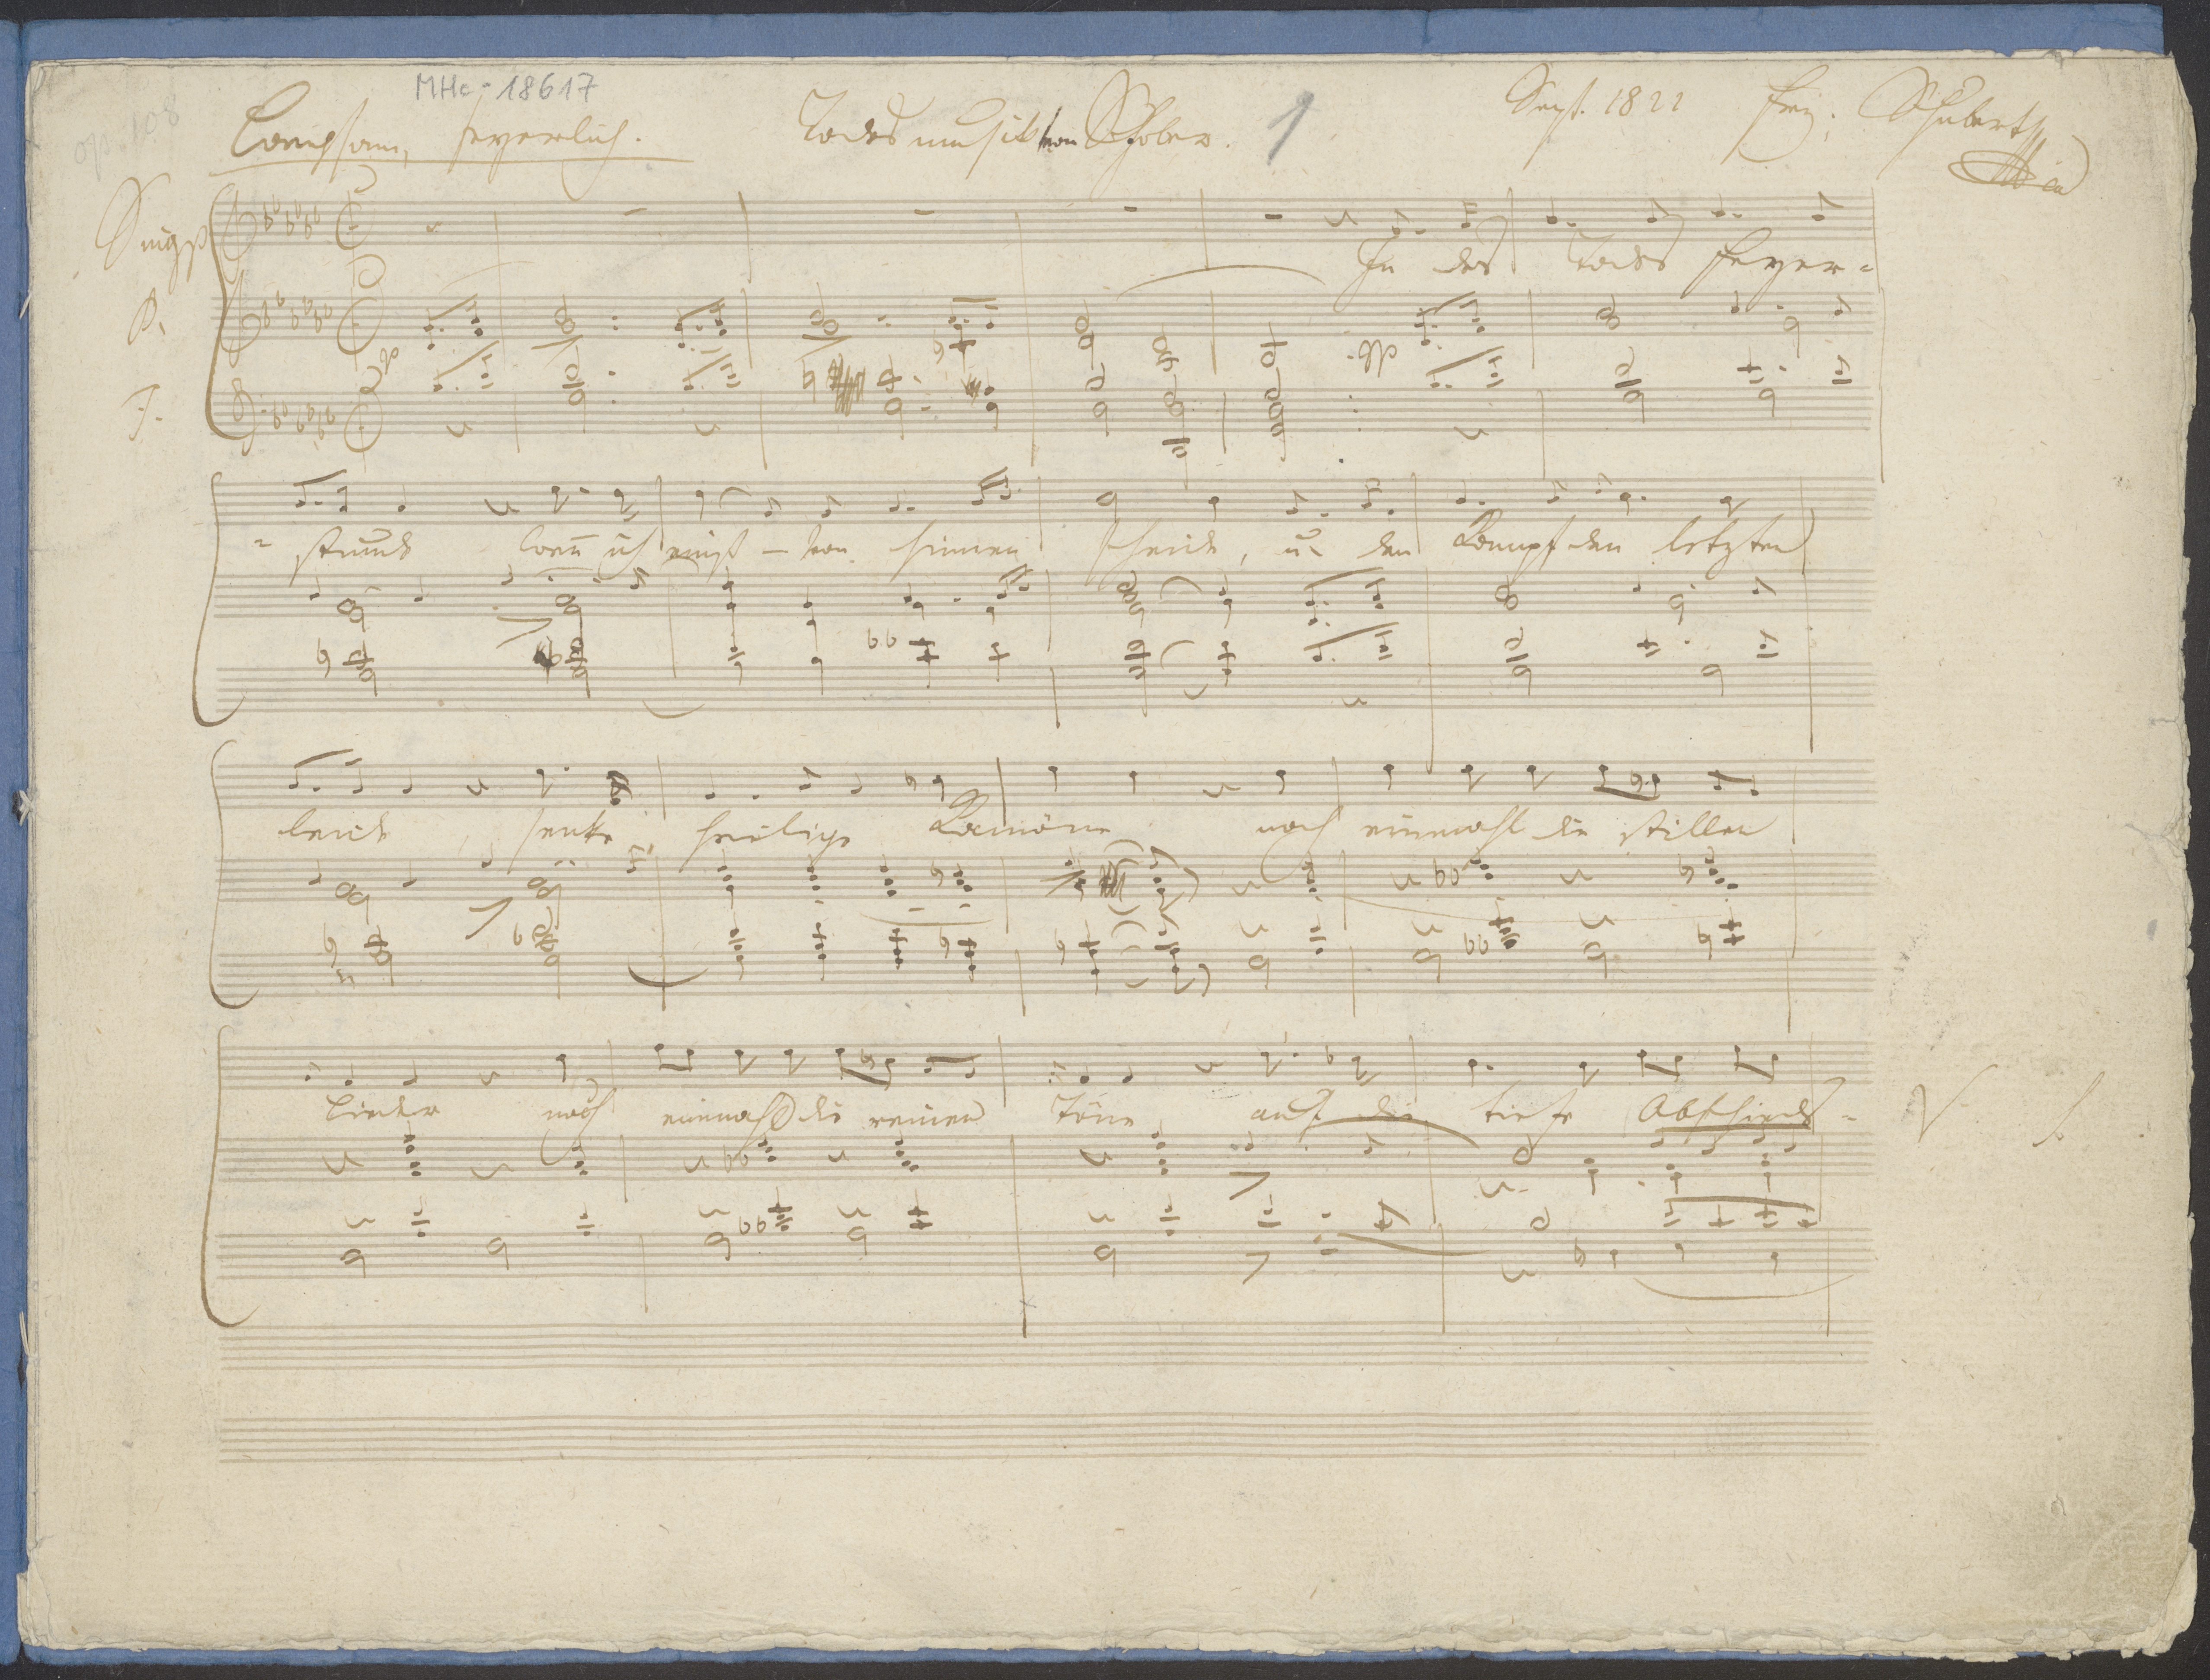 MHc-18617
op. 108
Langsam, feyerlich. Todesmusik von Schober. 1 Sept. 1822 Frz. Schubert
Singst
P.
F.
In des Todes Feyer-
pp
pp
-stunde wenn ich einst von hinnen scheide, u. den Kampf den letzten
leide, senke heilige Kamöne noch einmahl die stillen
Lieder noch einmahl die reinen Töne auf die tiefe Abschieds-
V. S.